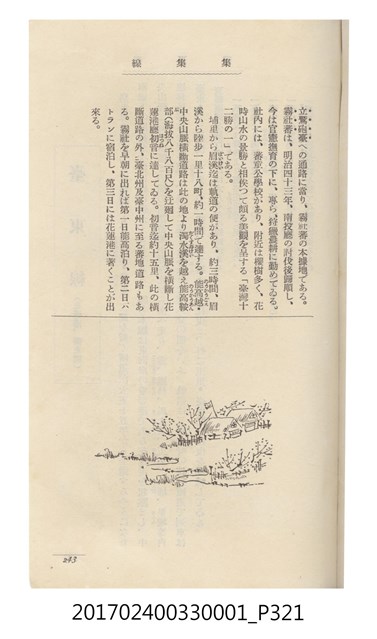 線集集
立鷲砲臺への通路に當り、霧社蕃の本據地である。
霧社蕃は、明治四十三年、南投廳の討伐後歸順し、
今は官憲撫育の下に、專ら狩獵農耕に勤めてゐる。
社内には、蕃童公學校があり、附近は櫻樹多く、花
時山水の景勝と相俟つて頗る美觀を呈する「臺灣十
二勝の一」である。
埔里から眉溪迄は軌道の便があり、約三時間、眉
溪から陸歩一里十八町、約一時間で達する。能高越・
中央山脈橫斷道路は此の地より濁水溪を越え能高鞍
部(海拔八千八百尺)を迂廻して中央山脈を橫斷し花
蓮港廳初音に達してゐる。初音迄約十五里、此の橫
斷道路の外、臺北州及臺中州に至る蕃地道路もあ
る。霧社を早朝に出れば第一日能高泊り、第二日バ
トランに宿泊し、第三日には花蓮港に著くことが出
來る。
283
201702400330001_P321